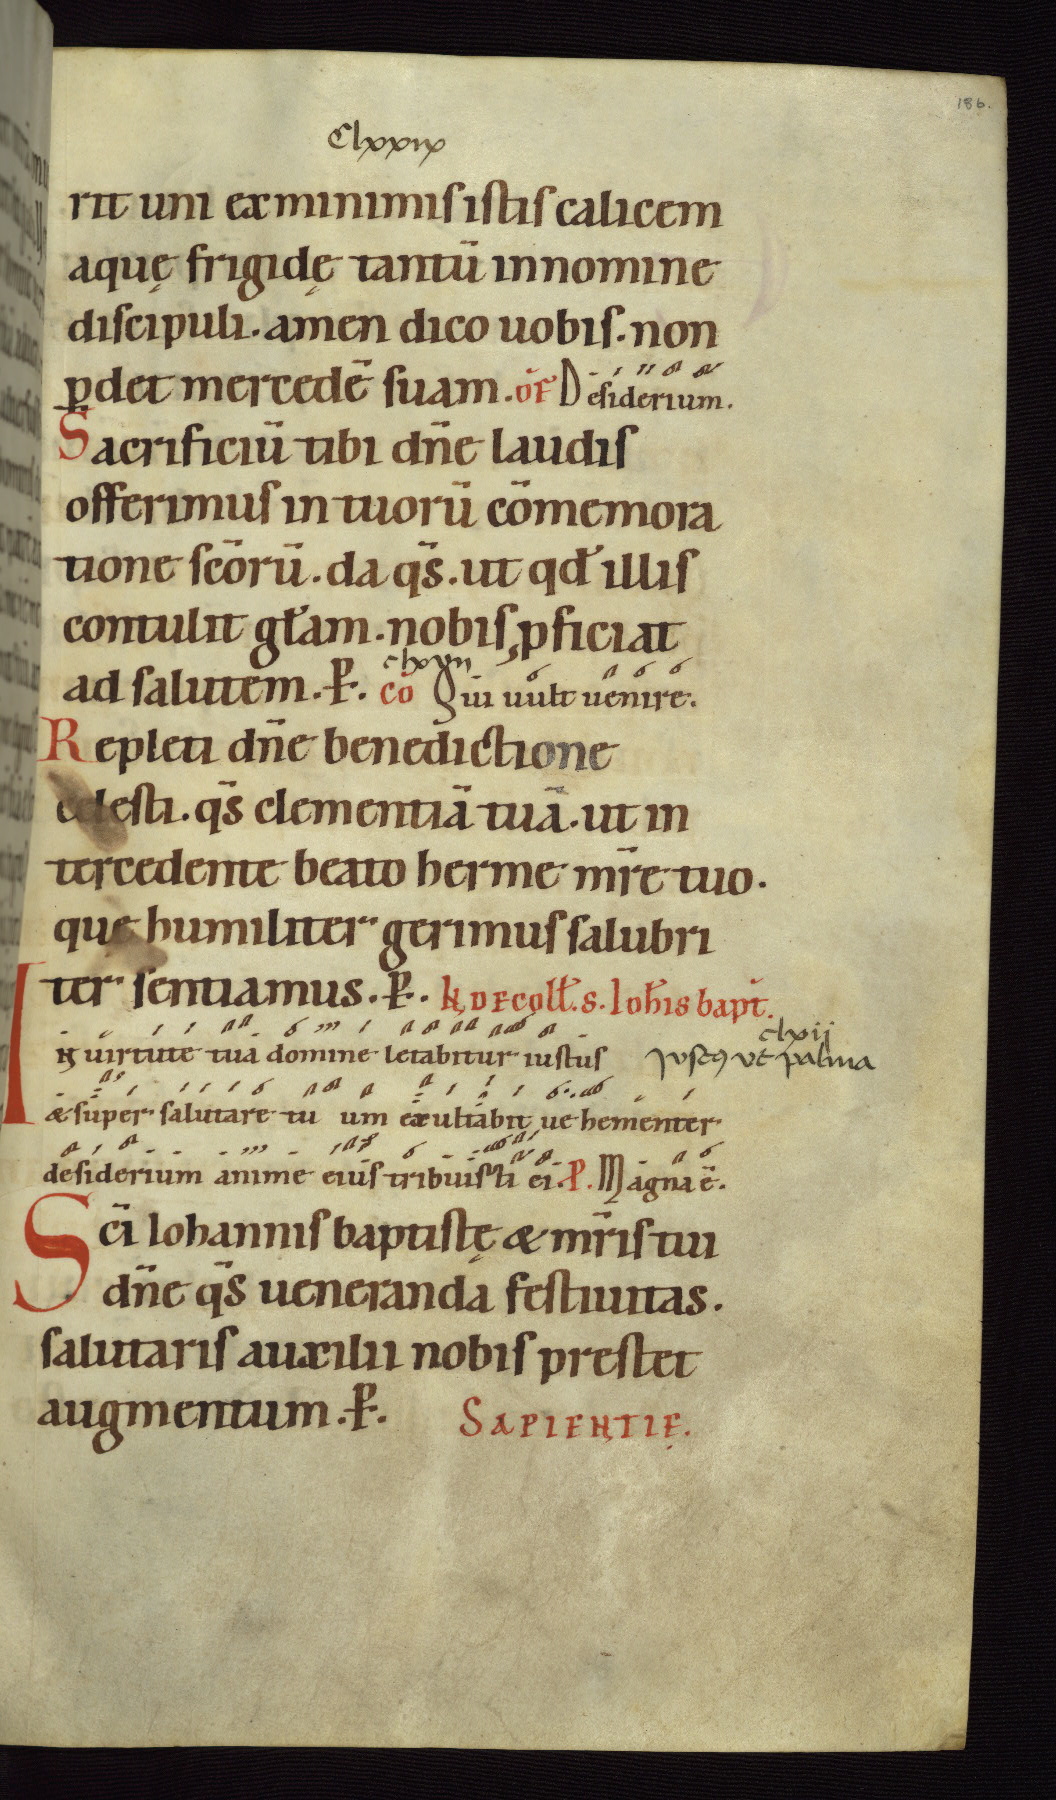 186.
Clxxix
rit uni ex minimis istis calicem
aquę frigidę tantū in nomine
discipuli. amen dico uobis. non
ꝑdet mercedē suam. of Desiderium.
Sacrificiū tibi dn̄e laudis
offerimus in tuorū cōmemora
tione scōrū. da q̄s. ut qd̄ illis
contulit gr̄am. nobis ꝓficiat
ad salutem. P̱. cō Qui uult uenire.
clxvii
Repleti dn̄e benedictione
celesti. q̄s clementiā tuā. ut in
tercedente beato herme mr̄e tuo.
quę humiliter gerimus salubri
ter sentiamus. P̱. IN DECOLL. S. Ioh̄is bapt̄.
clxii
IN uirtute tua domine letabitur iustus Justꝰ ut palma
& super salutare tu um exultabit ue hementer
desiderium anime eius tribuisti ei. P. Magna ē.
Sc̄i Iohannis baptistę & mr̄is tui
dn̄e q̄s ueneranda festiuitas.
salutaris auxilii nobis prestet
augmentum. P̱. SAPIENTIĘ.